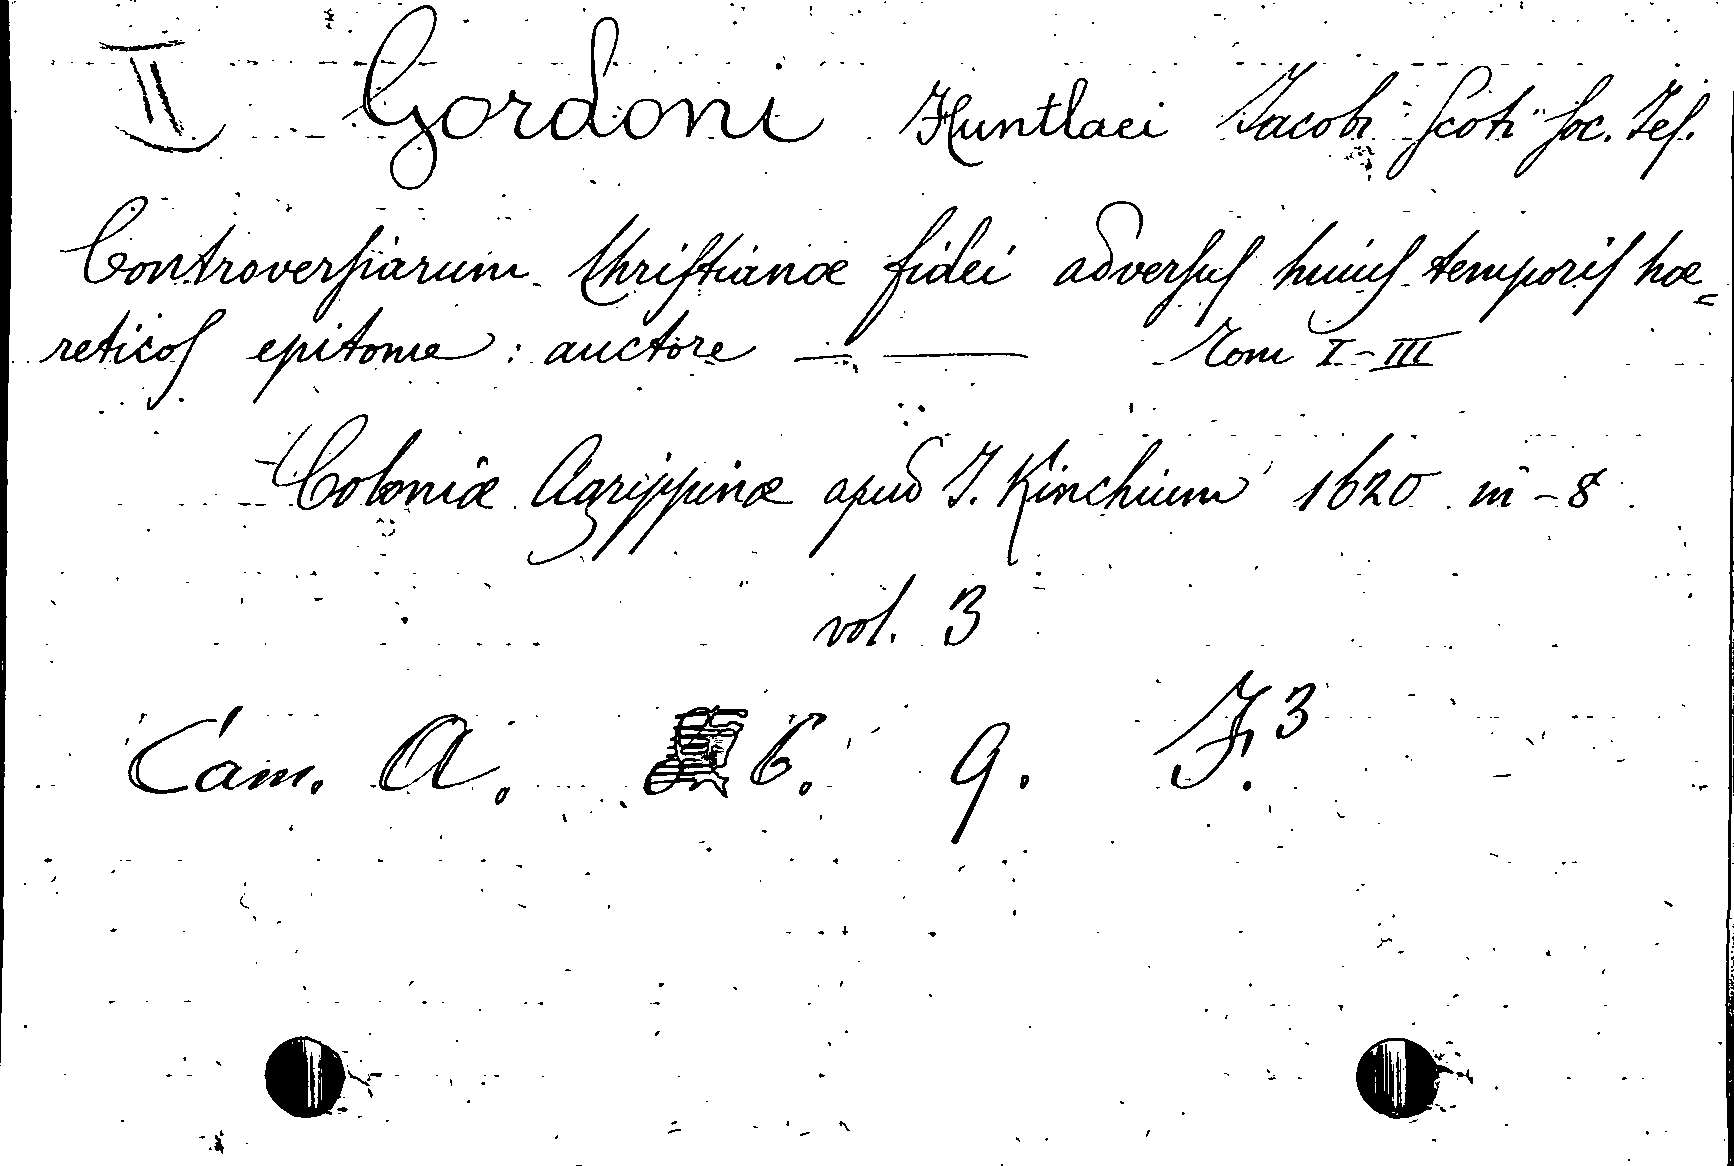 II Gordoni Huntlaei Jacobi Scoti Soc. Jes.
Controversiarum Christianæ fidei adversus huius temporis hæ=
reticos epitome : auctore — — Tom I-III
Coloniæ Agrippinæ apud J. Kinchium 1620 in-8
vol. 3
Cam. A. 6. 9. F.3